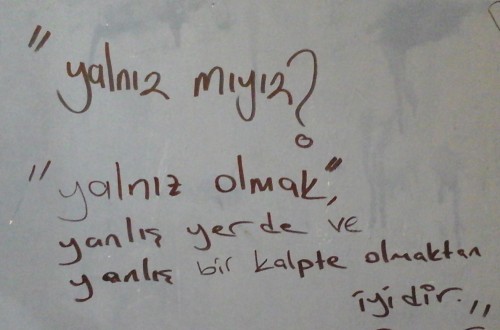 "yalnız mıyız?
"yalnız olmak",
yanlış yerde ve
yanlış bir kalpte olmaktan
iyidir."